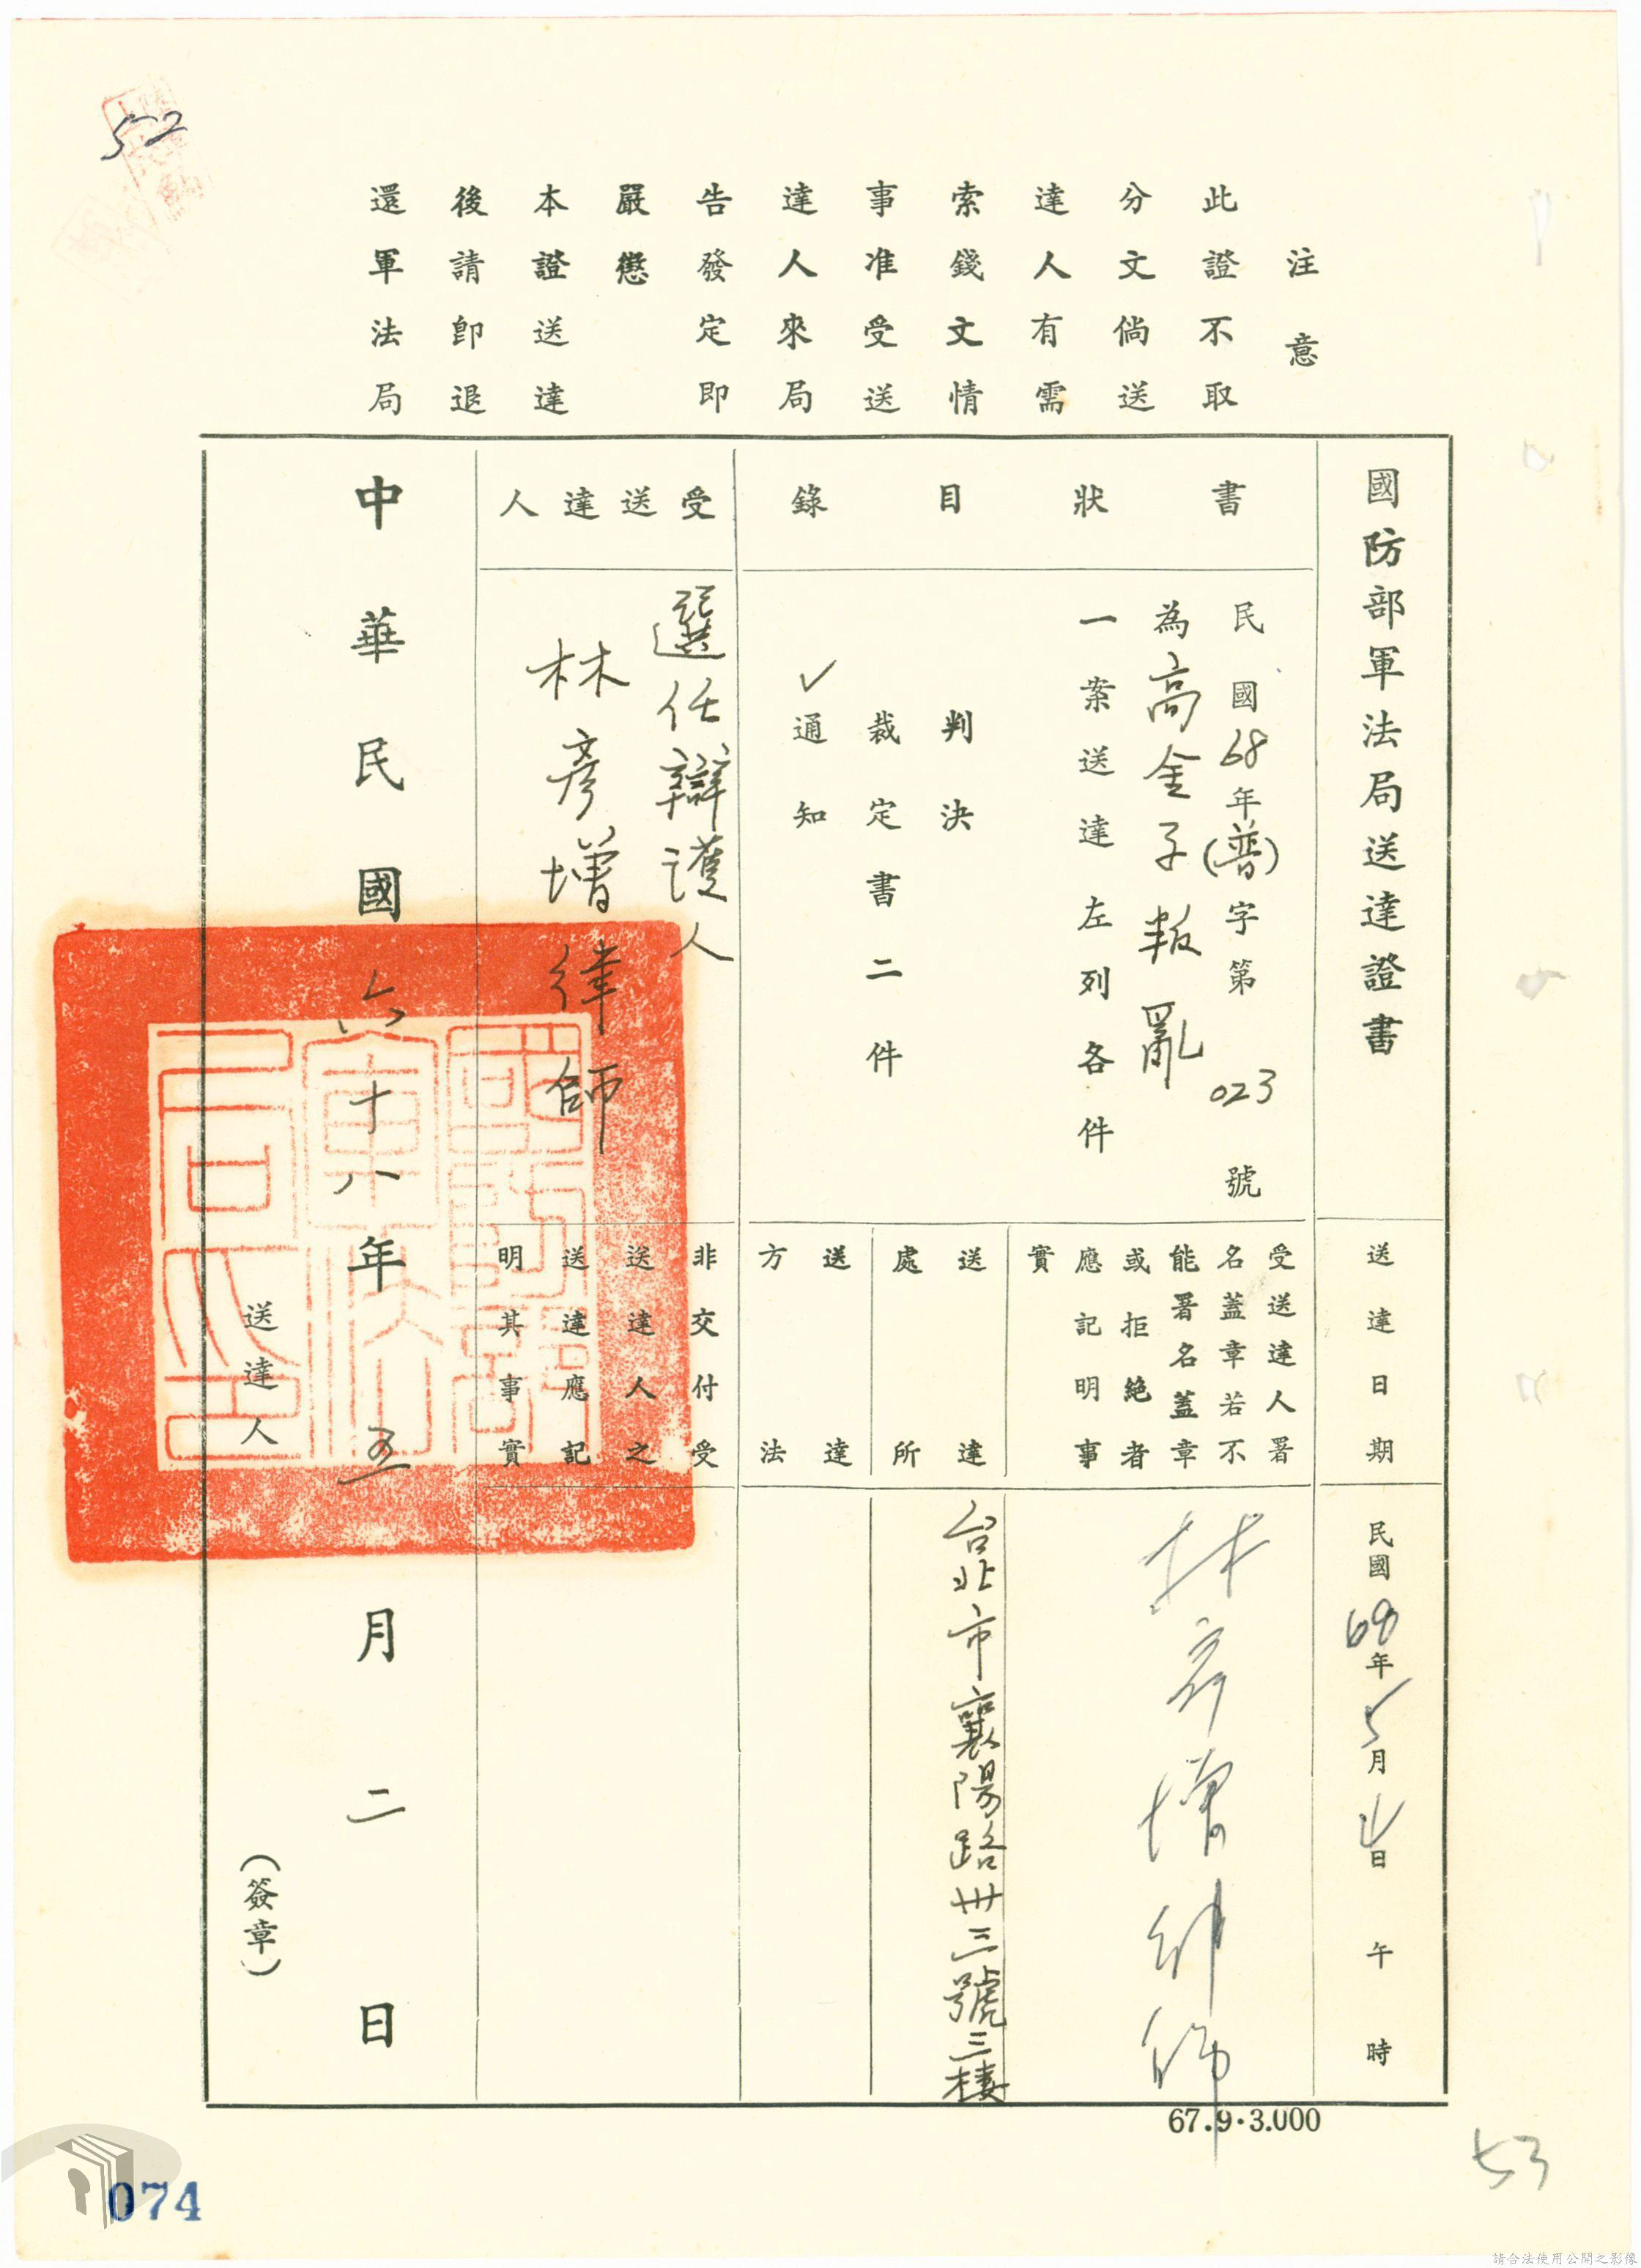 52
注意
此證不取
分文倘送
達人有需
索錢文情
事准受送
達人來局
告發定即
嚴懲
本證送達
後請即退
還軍法局
國防部軍法局送達證書
書狀目錄
民國68年(普)字第023號
為高金子叛亂
一案送達左列各件
判決
裁定書二件
✓通知
受送達人
選任辯護人
林彥增律師
中華民國六十八年五月二日
送達日期
民國68年5月4日 午 時
受送達人署
名蓋章若不
能署名蓋章
或拒絕者
應記明事
實
林彥增律師
送達
處所
台北市襄陽路卅三號三樓
送達
方法
非交付受
送達人之
送達應記
明其事實
國防部軍法局之印
送達人
(簽章)
67.9.3.000
53
074
請合法使用公開之影像